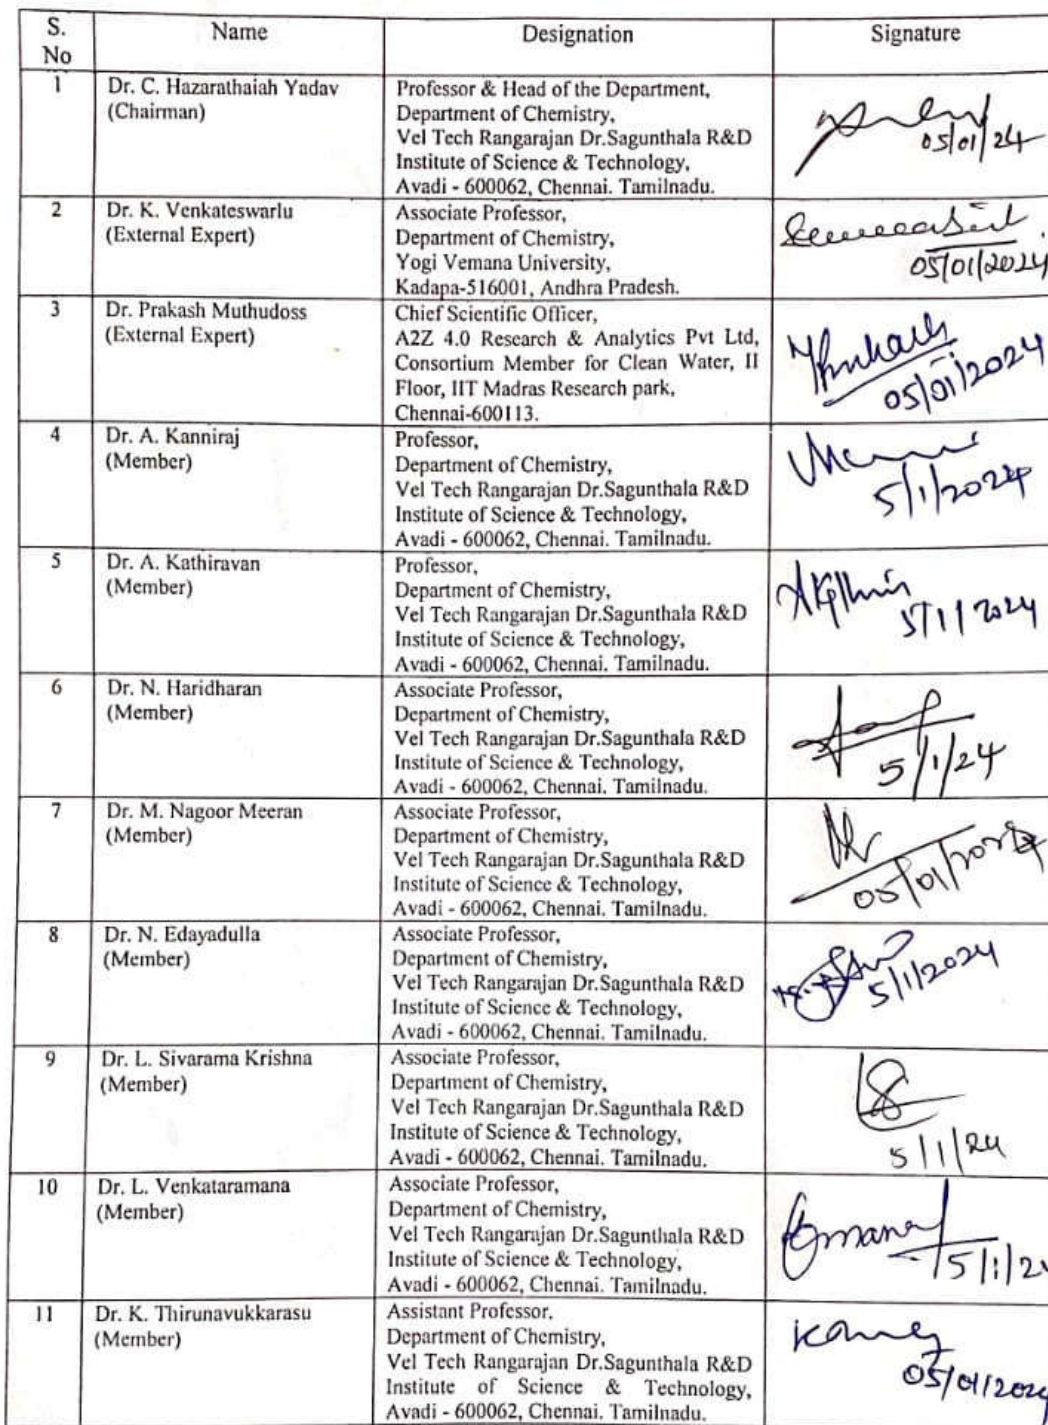 S. No Name Designation Signature
1 Dr. C. Hazarathaiah Yadav Professor & Head of the Department,
(Chairman) Department of Chemistry,
Vel Tech Rangarajan Dr.Sagunthala R&D
Institute of Science & Technology,
Avadi - 600062, Chennai. Tamilnadu.
05/01/24
2 Dr. K. Venkateswarlu Associate Professor,
(External Expert) Department of Chemistry,
Yogi Vemana University,
Kadapa-516001, Andhra Pradesh.
05/01/2024
3 Dr. Prakash Muthudoss Chief Scientific Officer,
(External Expert) A2Z 4.0 Research & Analytics Pvt Ltd,
Consortium Member for Clean Water, II
Floor, IIT Madras Research park,
Chennai-600113.
05/01/2024
4 Dr. A. Kanniraj Professor,
(Member) Department of Chemistry,
Vel Tech Rangarajan Dr.Sagunthala R&D
Institute of Science & Technology,
Avadi - 600062, Chennai. Tamilnadu.
5/1/2024
5 Dr. A. Kathiravan Professor,
(Member) Department of Chemistry,
Vel Tech Rangarajan Dr.Sagunthala R&D
Institute of Science & Technology,
Avadi - 600062, Chennai. Tamilnadu.
5/1/2024
6 Dr. N. Haridharan Associate Professor,
(Member) Department of Chemistry,
Vel Tech Rangarajan Dr.Sagunthala R&D
Institute of Science & Technology,
Avadi - 600062, Chennai. Tamilnadu.
5/1/24
7 Dr. M. Nagoor Meeran Associate Professor,
(Member) Department of Chemistry,
Vel Tech Rangarajan Dr.Sagunthala R&D
Institute of Science & Technology,
Avadi - 600062, Chennai. Tamilnadu.
05/01/2024
8 Dr. N. Edayadulla Associate Professor,
(Member) Department of Chemistry,
Vel Tech Rangarajan Dr.Sagunthala R&D
Institute of Science & Technology,
Avadi - 600062, Chennai. Tamilnadu.
5/1/2024
9 Dr. L. Sivarama Krishna Associate Professor,
(Member) Department of Chemistry,
Vel Tech Rangarajan Dr.Sagunthala R&D
Institute of Science & Technology,
Avadi - 600062, Chennai. Tamilnadu.
5/1/24
10 Dr. L. Venkataramana Associate Professor,
(Member) Department of Chemistry,
Vel Tech Rangarajan Dr.Sagunthala R&D
Institute of Science & Technology,
Avadi - 600062, Chennai. Tamilnadu.
5/1/2
11 Dr. K. Thirunavukkarasu Assistant Professor,
(Member) Department of Chemistry,
Vel Tech Rangarajan Dr.Sagunthala R&D
Institute of Science & Technology,
Avadi - 600062, Chennai. Tamilnadu.
05/01/2024